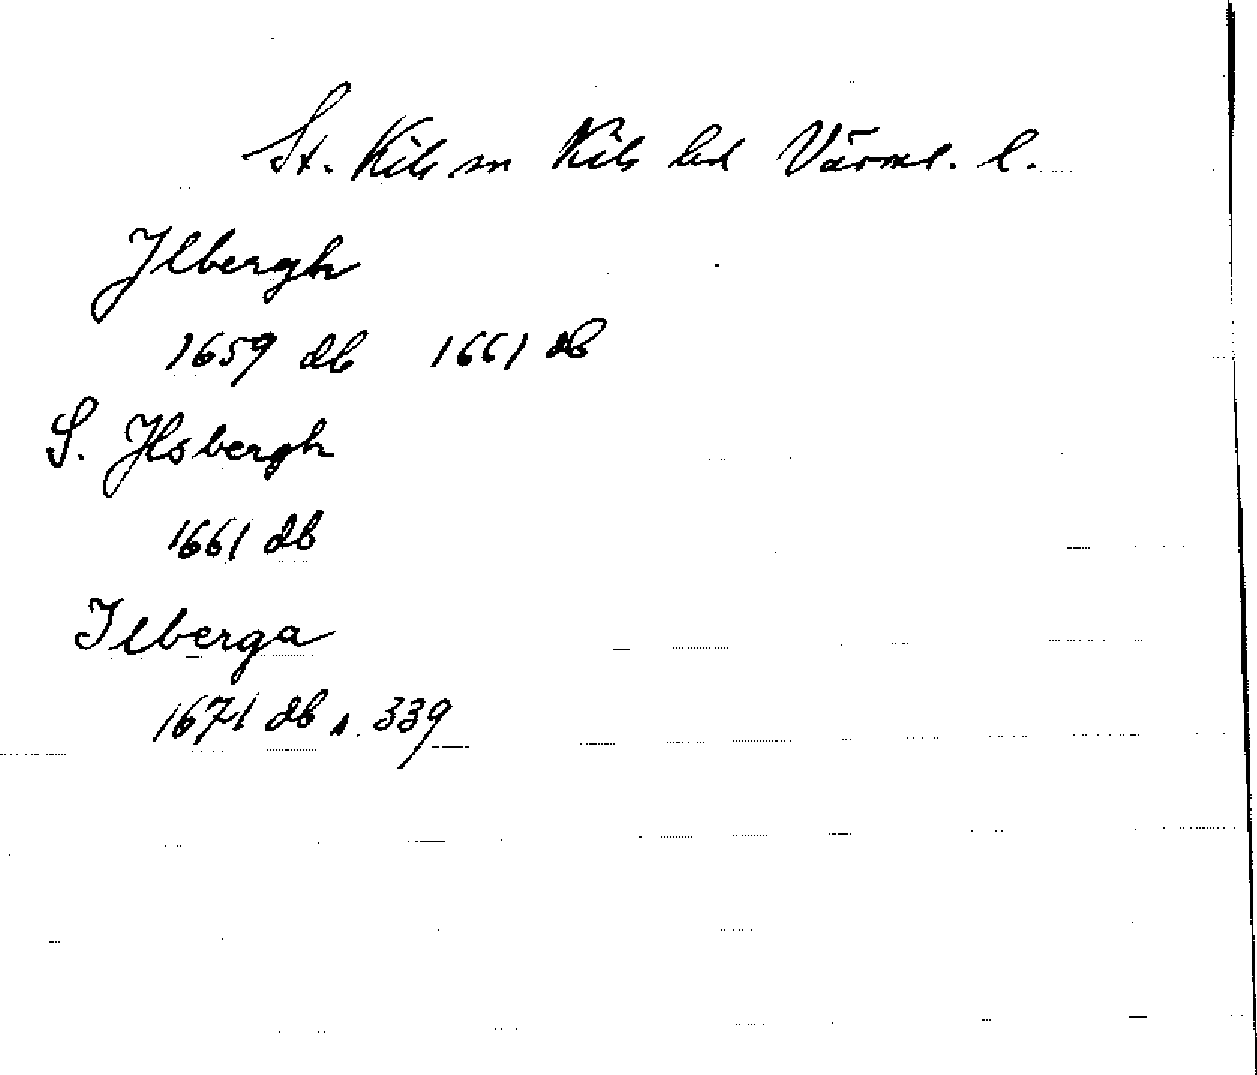 St. Kils sn Kils hd Värml. l.
Ilbergh
1659 db 1661 db
S. Ilsbergh
1661 db
Ilberga
1671 db s. 339